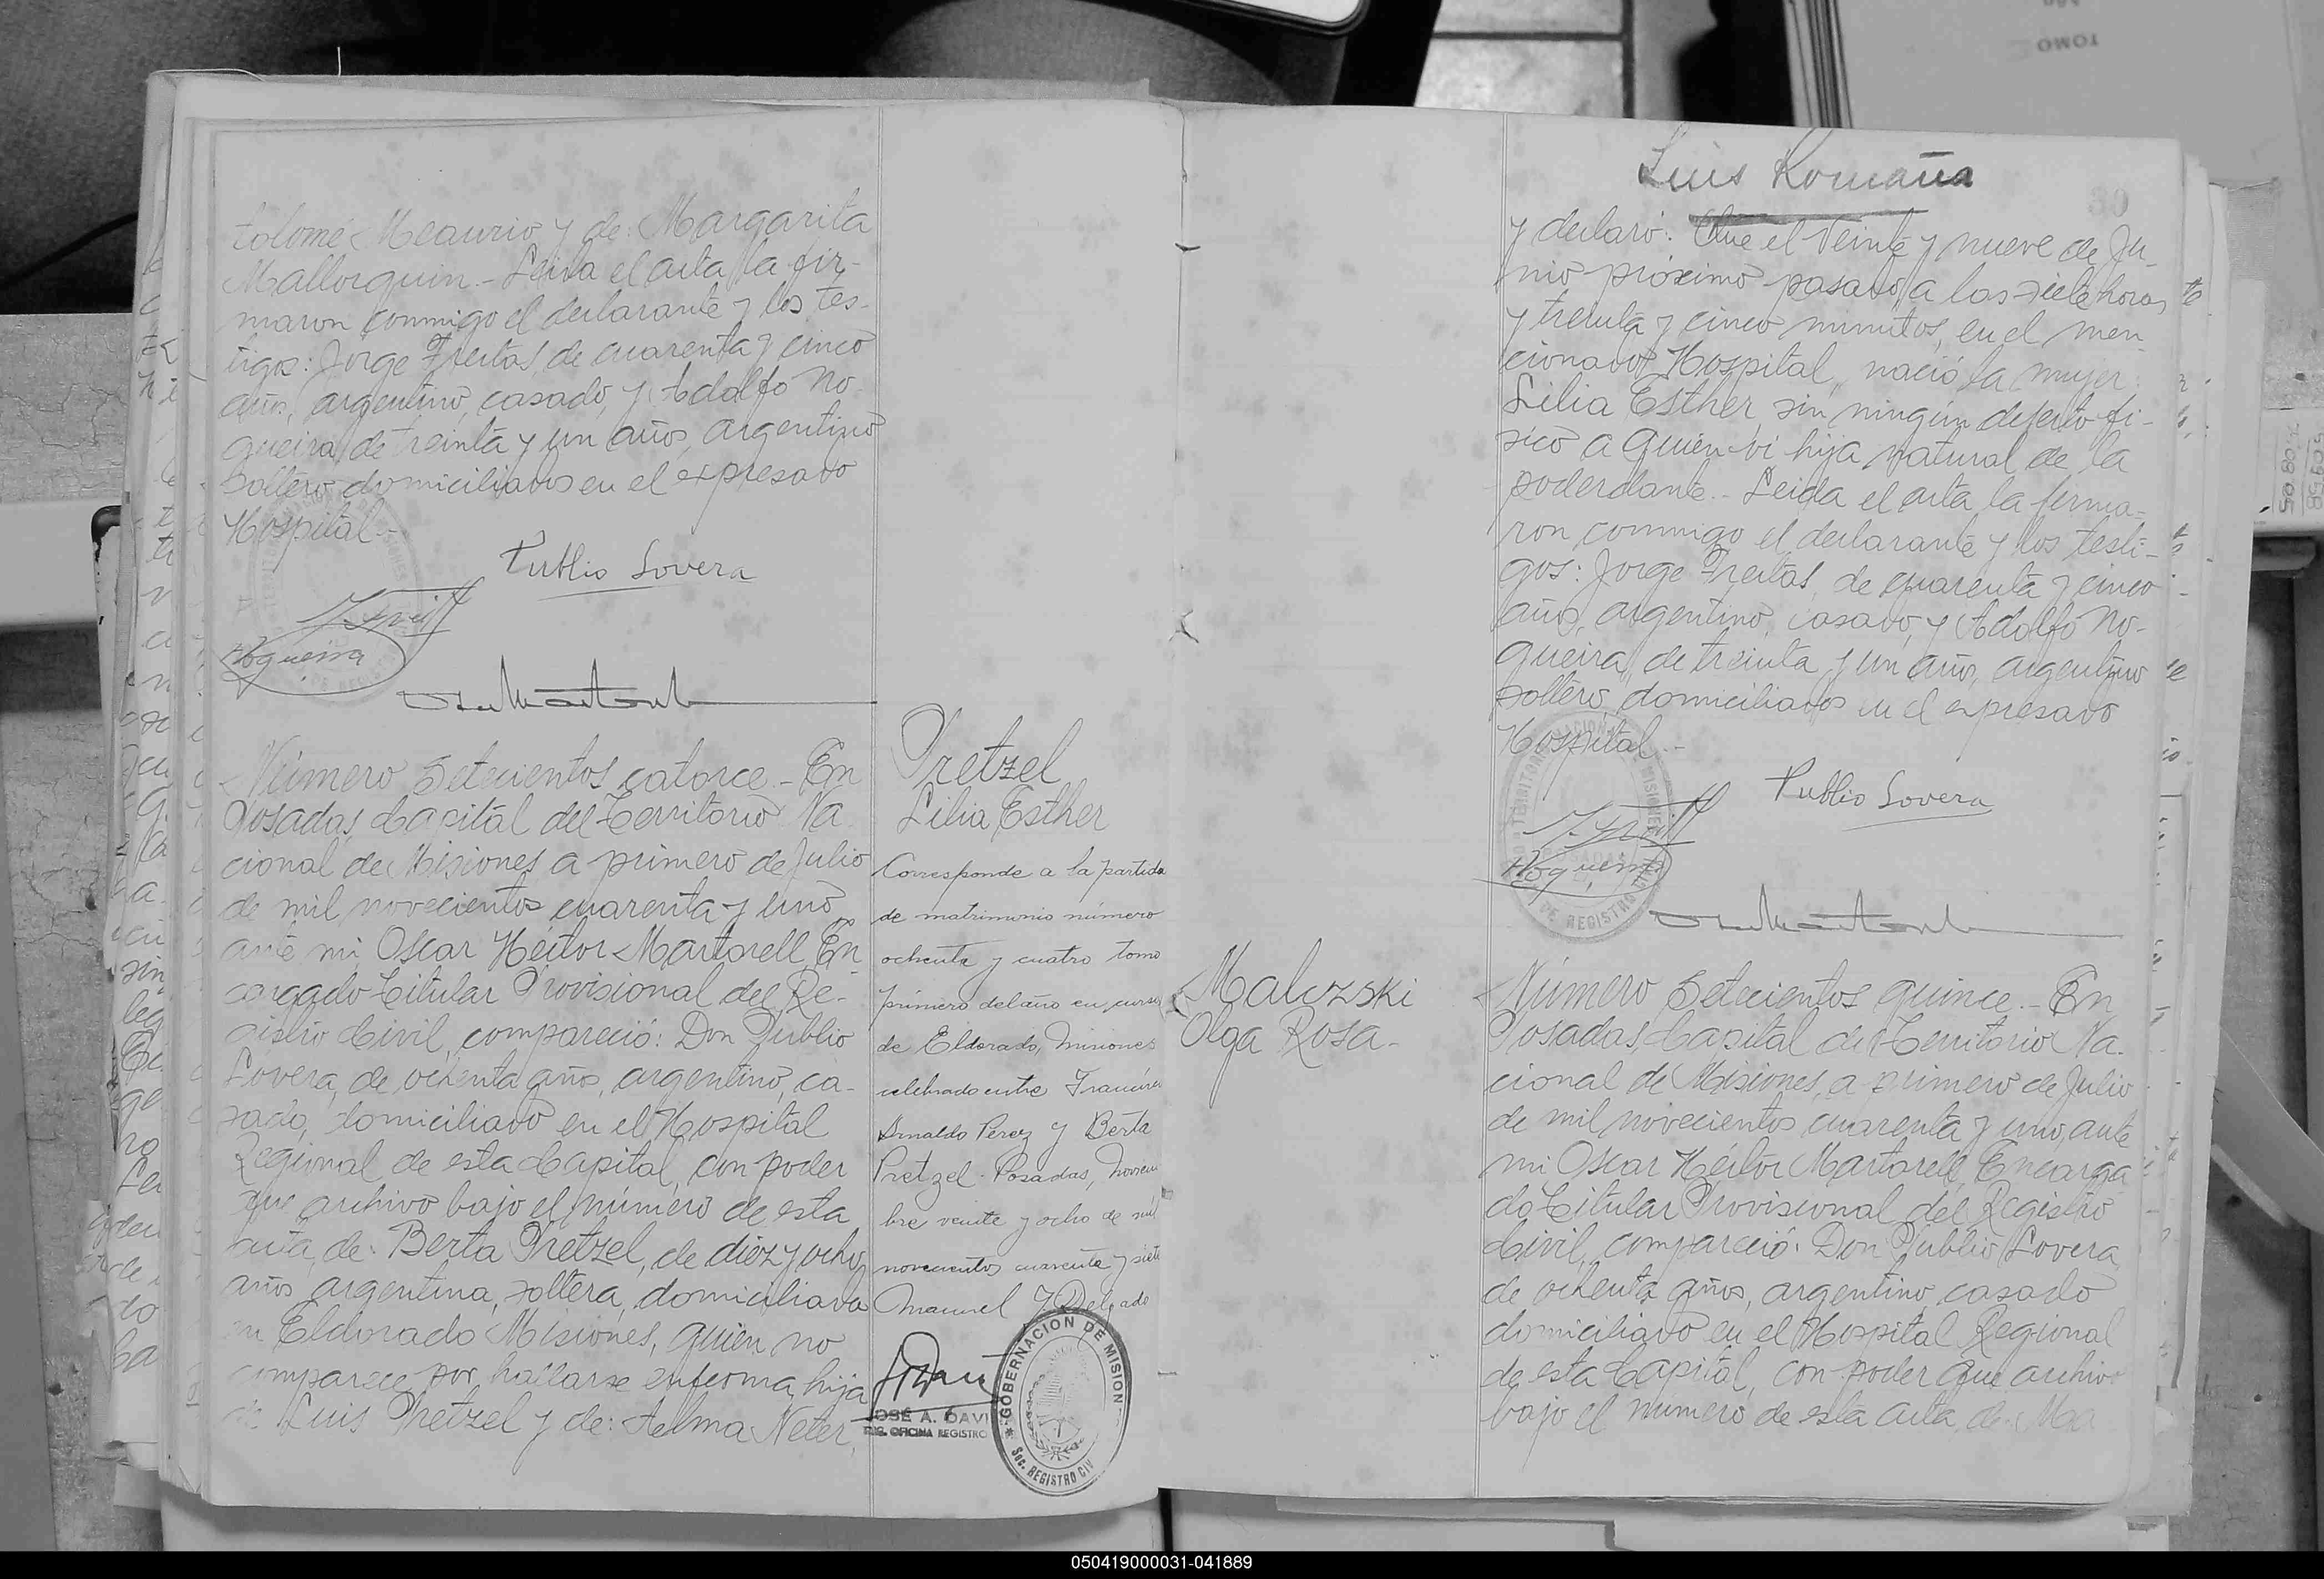 tolomé Meaurio y de: Margarita
Mallorquin.- Leida el acta la fir-
maron conmigo el declarante y los tes-
tigos: Jorge Freitas, de cuarenta y cinco
años, argentino, casado, y Adolfo No-
gueira, de treinta y un años, argentino
soltero domiciliados en el expresado
Hospital.-
Publio Lovera
Nogueira
Número Setecientos catorce - En
Posadas, Capital del Territorio Na
cional de Misiones, a primero de Julio
de mil novecientos cuarenta y uno
ante mi Oscar Héctor Martorell, En
cargado Titular Provisional del Re-
gistro Civil, compareció: Don Publio
Lovera, de ochenta años, argentino, ca-
sado, domiciliado en el Hospital
Regional de esta Capital, con poder
que archivo bajo el número de esta
acta, de: Berta Pretzel, de diez y ocho
años, argentina, soltera, domiciliada
en Eldorado Misiones, quien no
comparece por hallarse enferma, hija
de Luis Pretzel y de: Telma Neter,
Pretzel
Lilia Esther
Corresponde a la partida
de matrimonio número
ochenta y cuatro tomo
primero del año en curso
de Eldorado, Misiones
celebrado entre
Arnaldo Perez y Berta
Pretzel - Posadas, Noviem
bre veinte y ocho de mil
novecientos cuarenta y siete
Manuel J Delgado
JOSÉ A. DAVI
OFICINA REGISTRO
GOBERNACION DE MISION
SEC. REGISTRO CIV
Luis Romaña
30
y declaró: Que el Veinte y nueve de Ju-
nio próximo pasado, a las siete horas
y treinta y cinco minutos, en el men
cionado Hospital, nació la mujer
Lilia Esther sin ningún defecto fi-
sico a quien vi hija natural de la
poderdante.- Leida el acta la firma-
ron conmigo el declarante y los testi-
gos: Jorge Freitas, de cuarenta y cinco
años, argentino, casado, y Adolfo No-
gueira, de treinta y un años, argentino
soltero, domiciliados en el expresado
Hospital.-
Publio Lovera
Nogueira
Malczski
Olga Rosa-
Número Setecientos quince.- En
Posadas, Capital del Territorio Na-
cional de Misiones, a primero de Julio
de mil novecientos cuarenta y uno, ante
mi Oscar Héctor Martorell, Encarga
do Titular Provisional del Registro
Civil, compareció: Don Publio Lovera
de ochenta años, argentino, casado
domiciliado en el Hospital Regional
de esta Capital, con poder que archivo
bajo el número de esta acta, de: Ma
TOMO
050419000031-041889